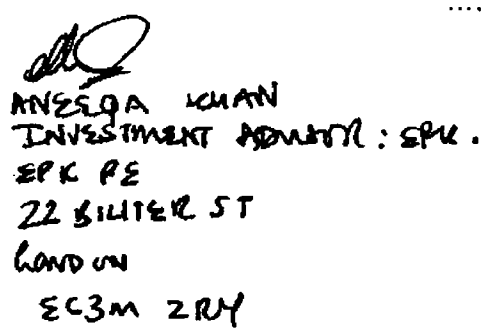 ANEEQA KHAN
INVESTMENT ADVISOR: EPK.
EPK PE
22 BILLITER ST
LONDON
EC3M 2RY